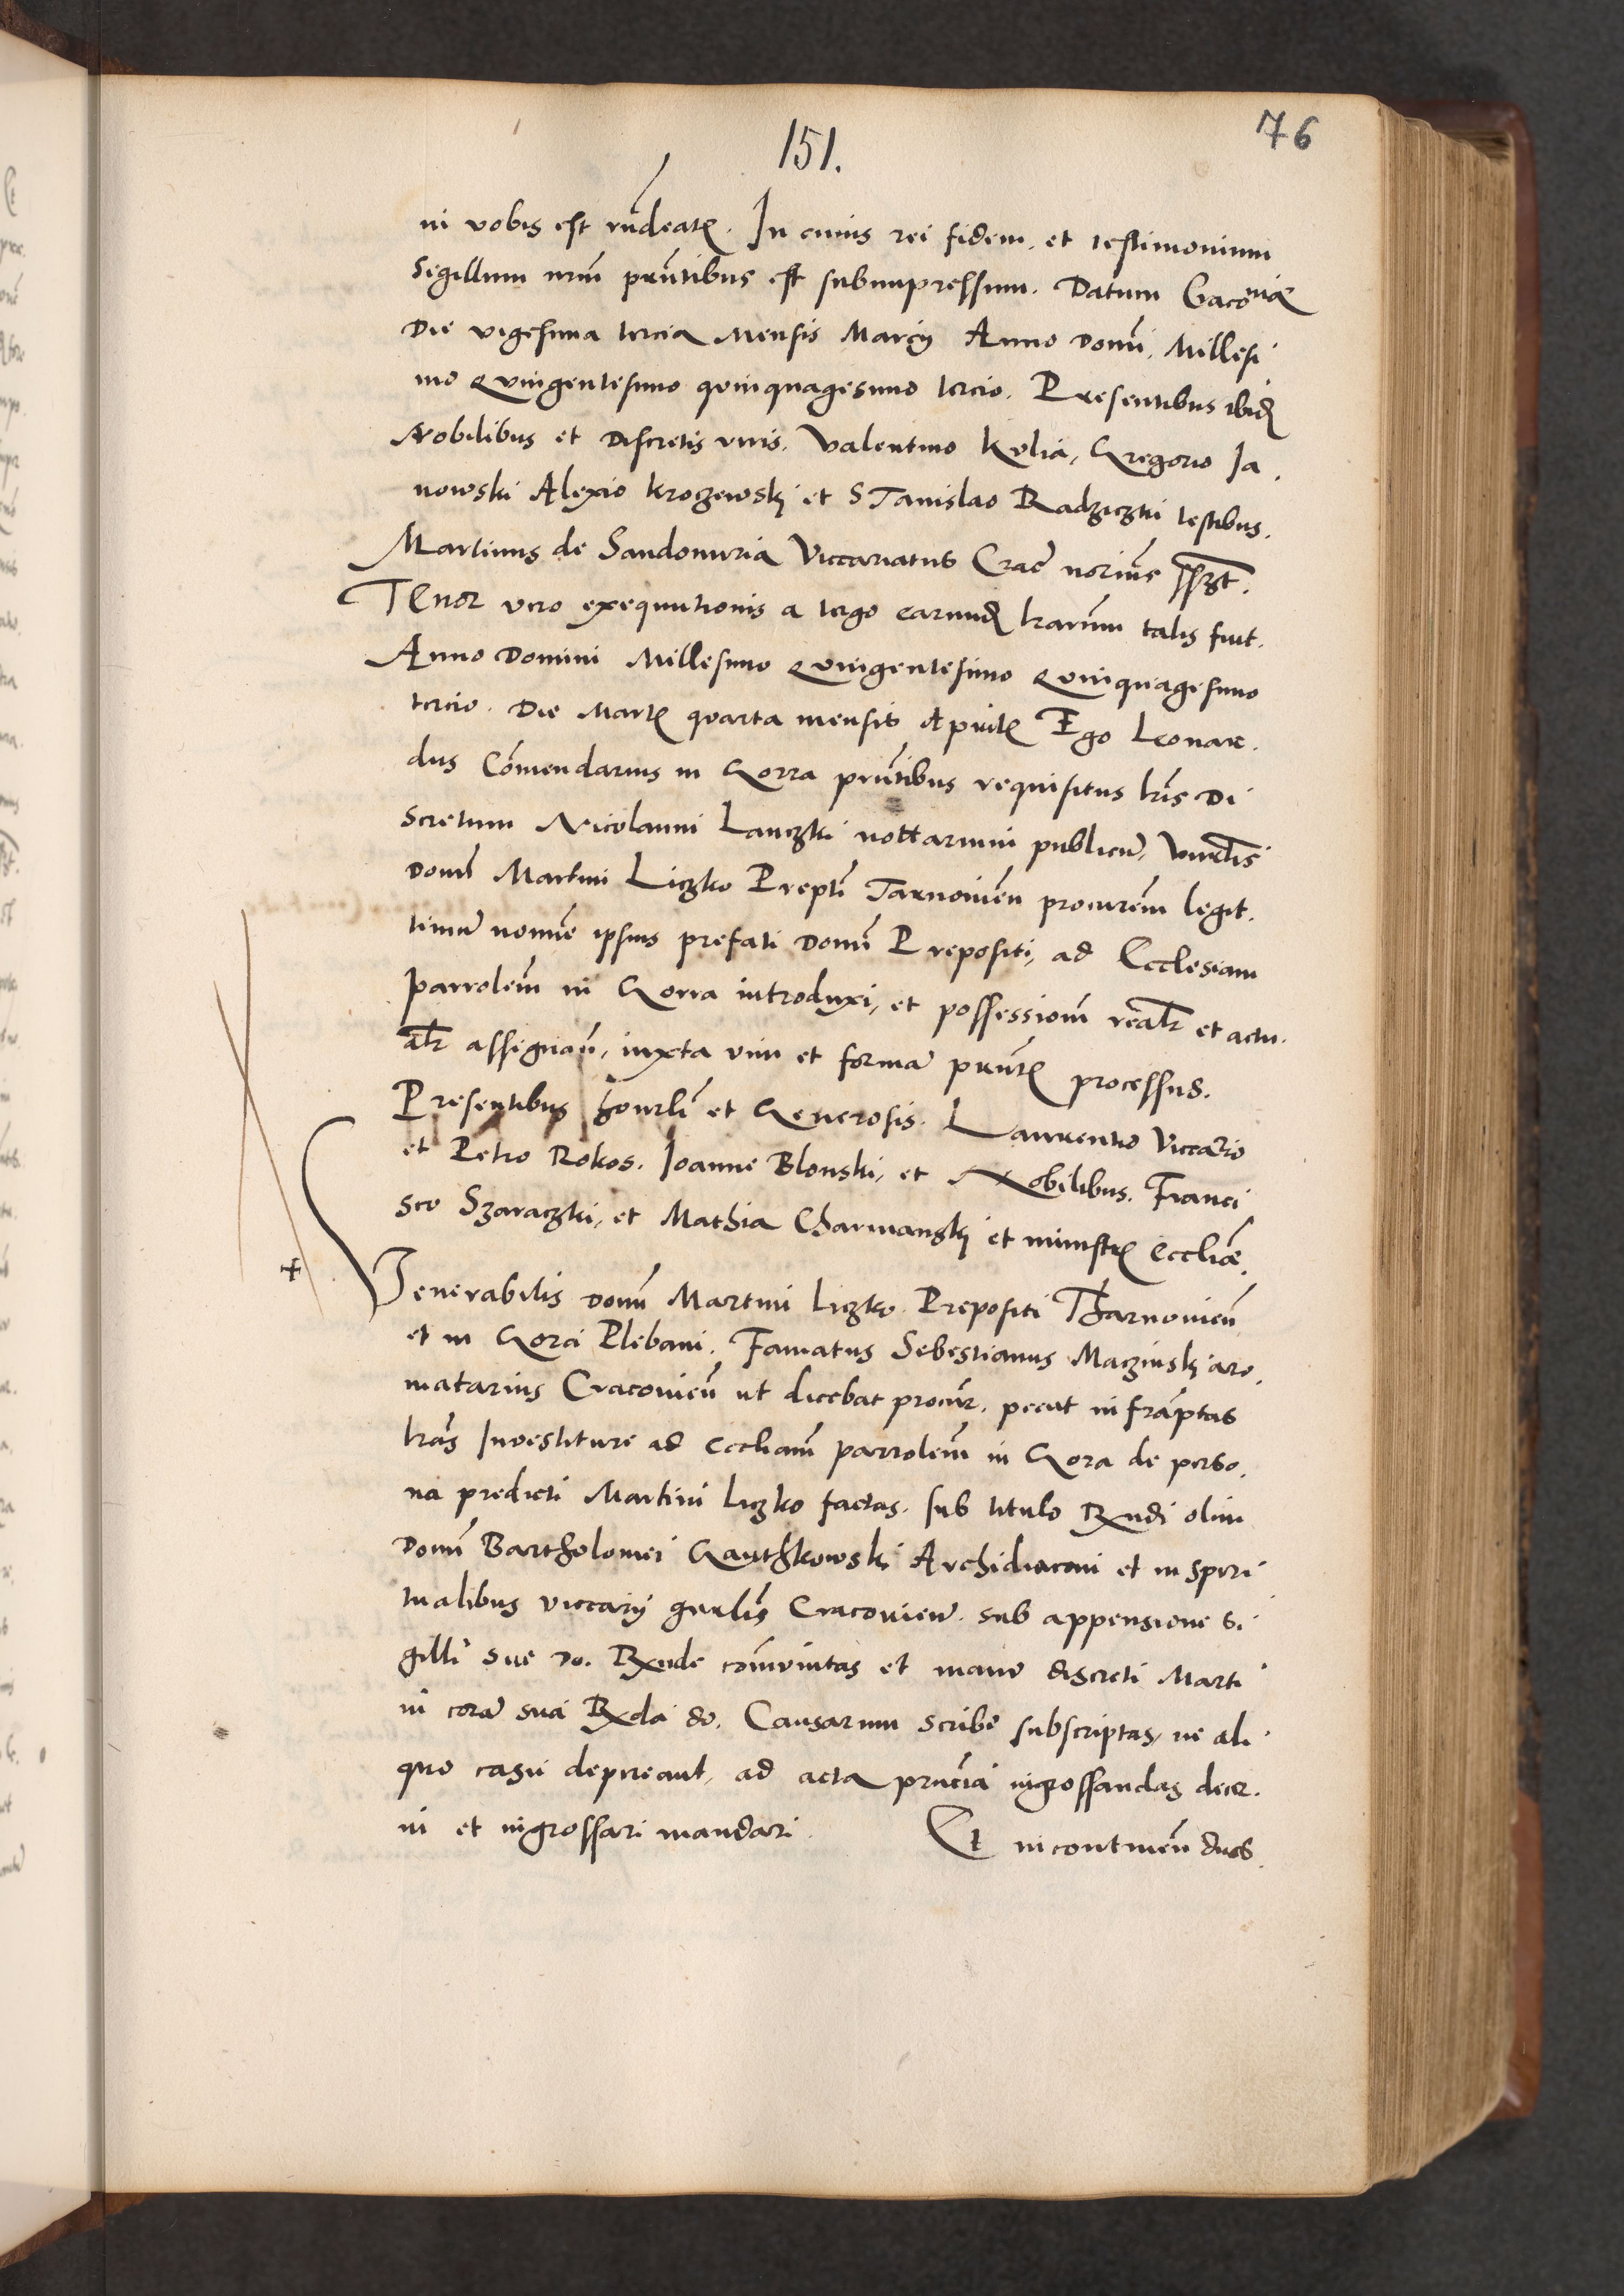 151.
76
ni vobis est rñdeatꝭ. In cuius rei fidem, et testimonium
Segillum nrũ prñtibus est subimpressum. Datum Cracoviæ
Die vigesima tercia Mensis Marcy Anno Domi, Millesi
mo Quingentesimo quinquagesimo tercio. Presentibus ibidꝫ
Nobilibus et Discretis viris. Valentino Kvlia, Gregorio Ja,
nowski Alexio Kroczewskj et STanislao Radziczki testibus.
Martinus de Sandomiria Viccariatus Crac̃ norius sszt.
TEnor vero exequutionis a tergo earundꝫ lrarum talis fuit.
Anno Domini Millesimo Quingentesimo Quinquagesimo
tercio. Die Martꝭ quarta mensis Aprilꝭ Ego Leonar.
dus Com̃endarius in Gorra prñtibus requisitus lrĩs Di
Scretum Nicolaum Lanczki nottarium publicũ, Vinrlis
Domĩ Martini Liczko Prepti Tarnovieñ procurem̃ legit.
timũ nomine ipsius prefati Domĩ Prepositi, ad Ecclesiam
parrolem̃ in Gorra introduxi, et possessionem̃ realẽ et actu.
alẽ assignavi, iuxta vim et formã prñtꝭ processus.
Presentibus honrli et Generosis. Laurentio Viccario
et Petro Rokos. Joanne Blonski, et Nobilibus. Franci
sco Szaraczki, et Mathia Charmanskj et ministrꝭ Ecclie.
+ Venerabilis Domĩ Martini Liczko Prepositi Tharnovieñ
et in Gora Plebani. Famatus Sebestianus Maczinskj aro,
matarius Cracovieñ ut dicebat procur̃. peciit infrãptas
lrãs Investiture ad eccliam̃ parrolem̃ in Gora de perso,
na predicti Martini Liczko factas. sub titulo Rxndi olim
Domĩ Bartholomei Ganthkowski Archidiaconi et in spiri
tualibus viccarij gnrlis Cracovieñ. sub appensione si
gilli sue Do. Rxnde com̃unitas et manu discreti Marti
ni corã sua Rxda do. Causarum scribe subscriptas, ne ali
quo casu depireant, ad acta prñcia ingrossandas decr.
ni et ingrossari mandari. Et incontineñ dnus